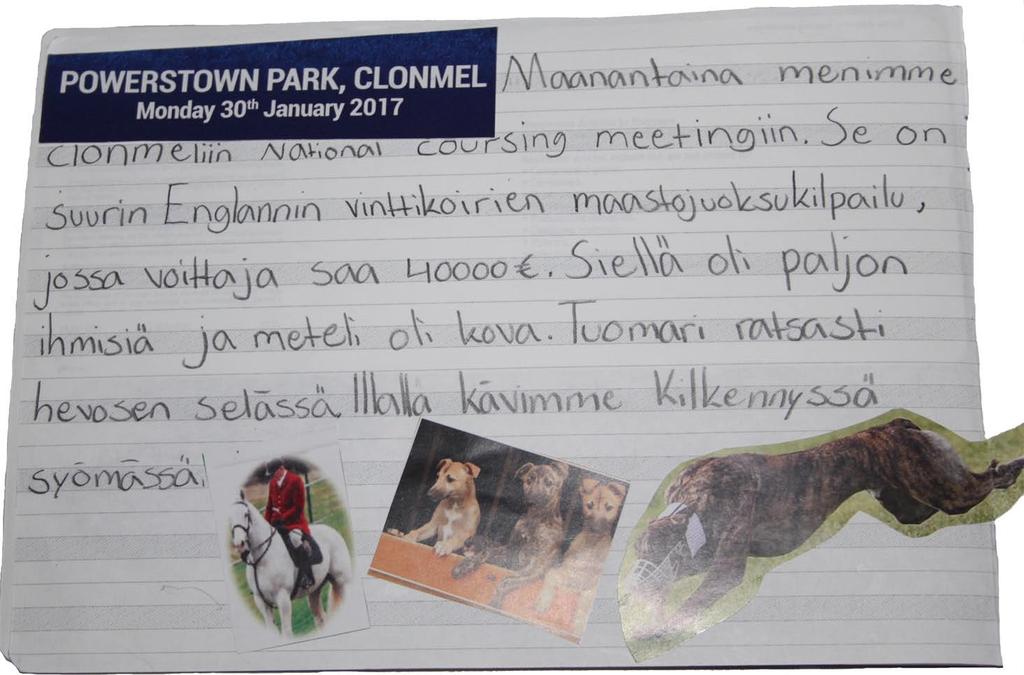 POWERSTOWN PARK, CLONMEL
Monday 30th January 2017
Maanantaina menimme
Clonmeliin National coursing meetingiin. Se on
suurin Englannin vinttikoirien maastojuoksukilpailu,
jossa voittaja saa 40000€. Siellä oli paljon
ihmisiä ja meteli oli kova. Tuomari ratsasti
hevosen selässä. Illalla kävimme Kilkennyssä
syömässä.